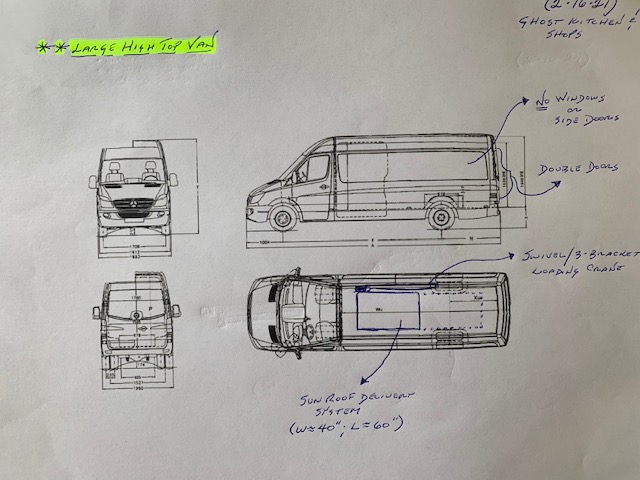 (2·16·21)
GHOST KITCHEN &
SHOPS
** LARGE HIGH TOP VAN
NO WINDOWS
OR
SIDE DOORS
DOUBLE DOORS
SWIVEL/3-BRACKET
LOADING CRANE
1004
SUNROOF DELIVERY
SYSTEM
(W≈40"; L≈60")